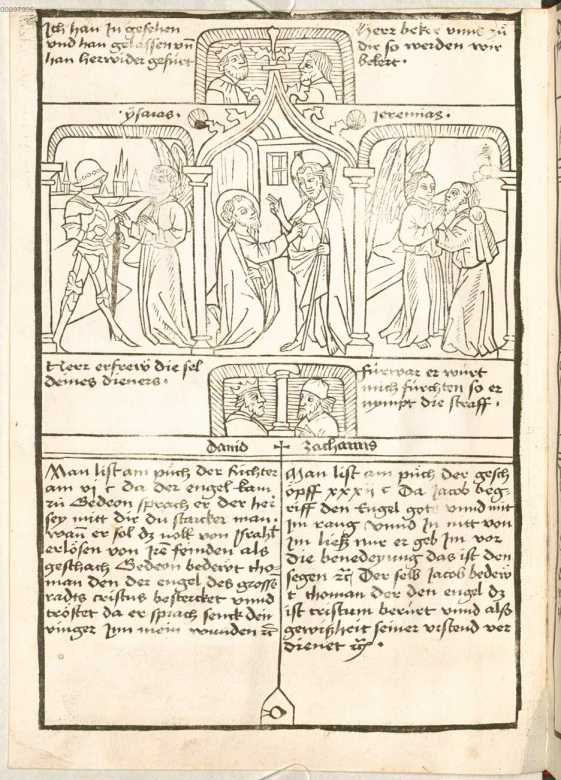 Ich han in gesehen
vnd han gelassen vñ
han herwider gefürt
Herr beker vnns zů
dir so werden wir
bekert.
ysaias.
Jeremias.
Herr erfrew die sel
deines dieners.
fürwar er würt
mich fürchten so er
nympt die straff.
dauid
zacharias
Man list am půch der Richter
am vj c da der engel kam
zů Gedeon sprach er der her
sey mitt dir du starcker man.
wañ er sol dz volk von Israhl
erlösen von irē feinden als
geschach Gedeon bedewt tho=
man den der engel des gross
radts cristus bestercket vnnd
tröstet da er sprach senck den
vinger Inn mein wunden rc̄
Man list am půch der gesch
öpff xxxij c Da Jacob beg=
riff den Engel gots vnnd mit
Im rang vnnd In nit von
Im ließ nur er geb Im vor
die benedeyung das ist den
segen rc̄ Der selb Jacob bedew
t thoman der den engel dz
ist cristum berürt vnnd alß
gewißheit seiner vrstend ver
dienet rc̄.